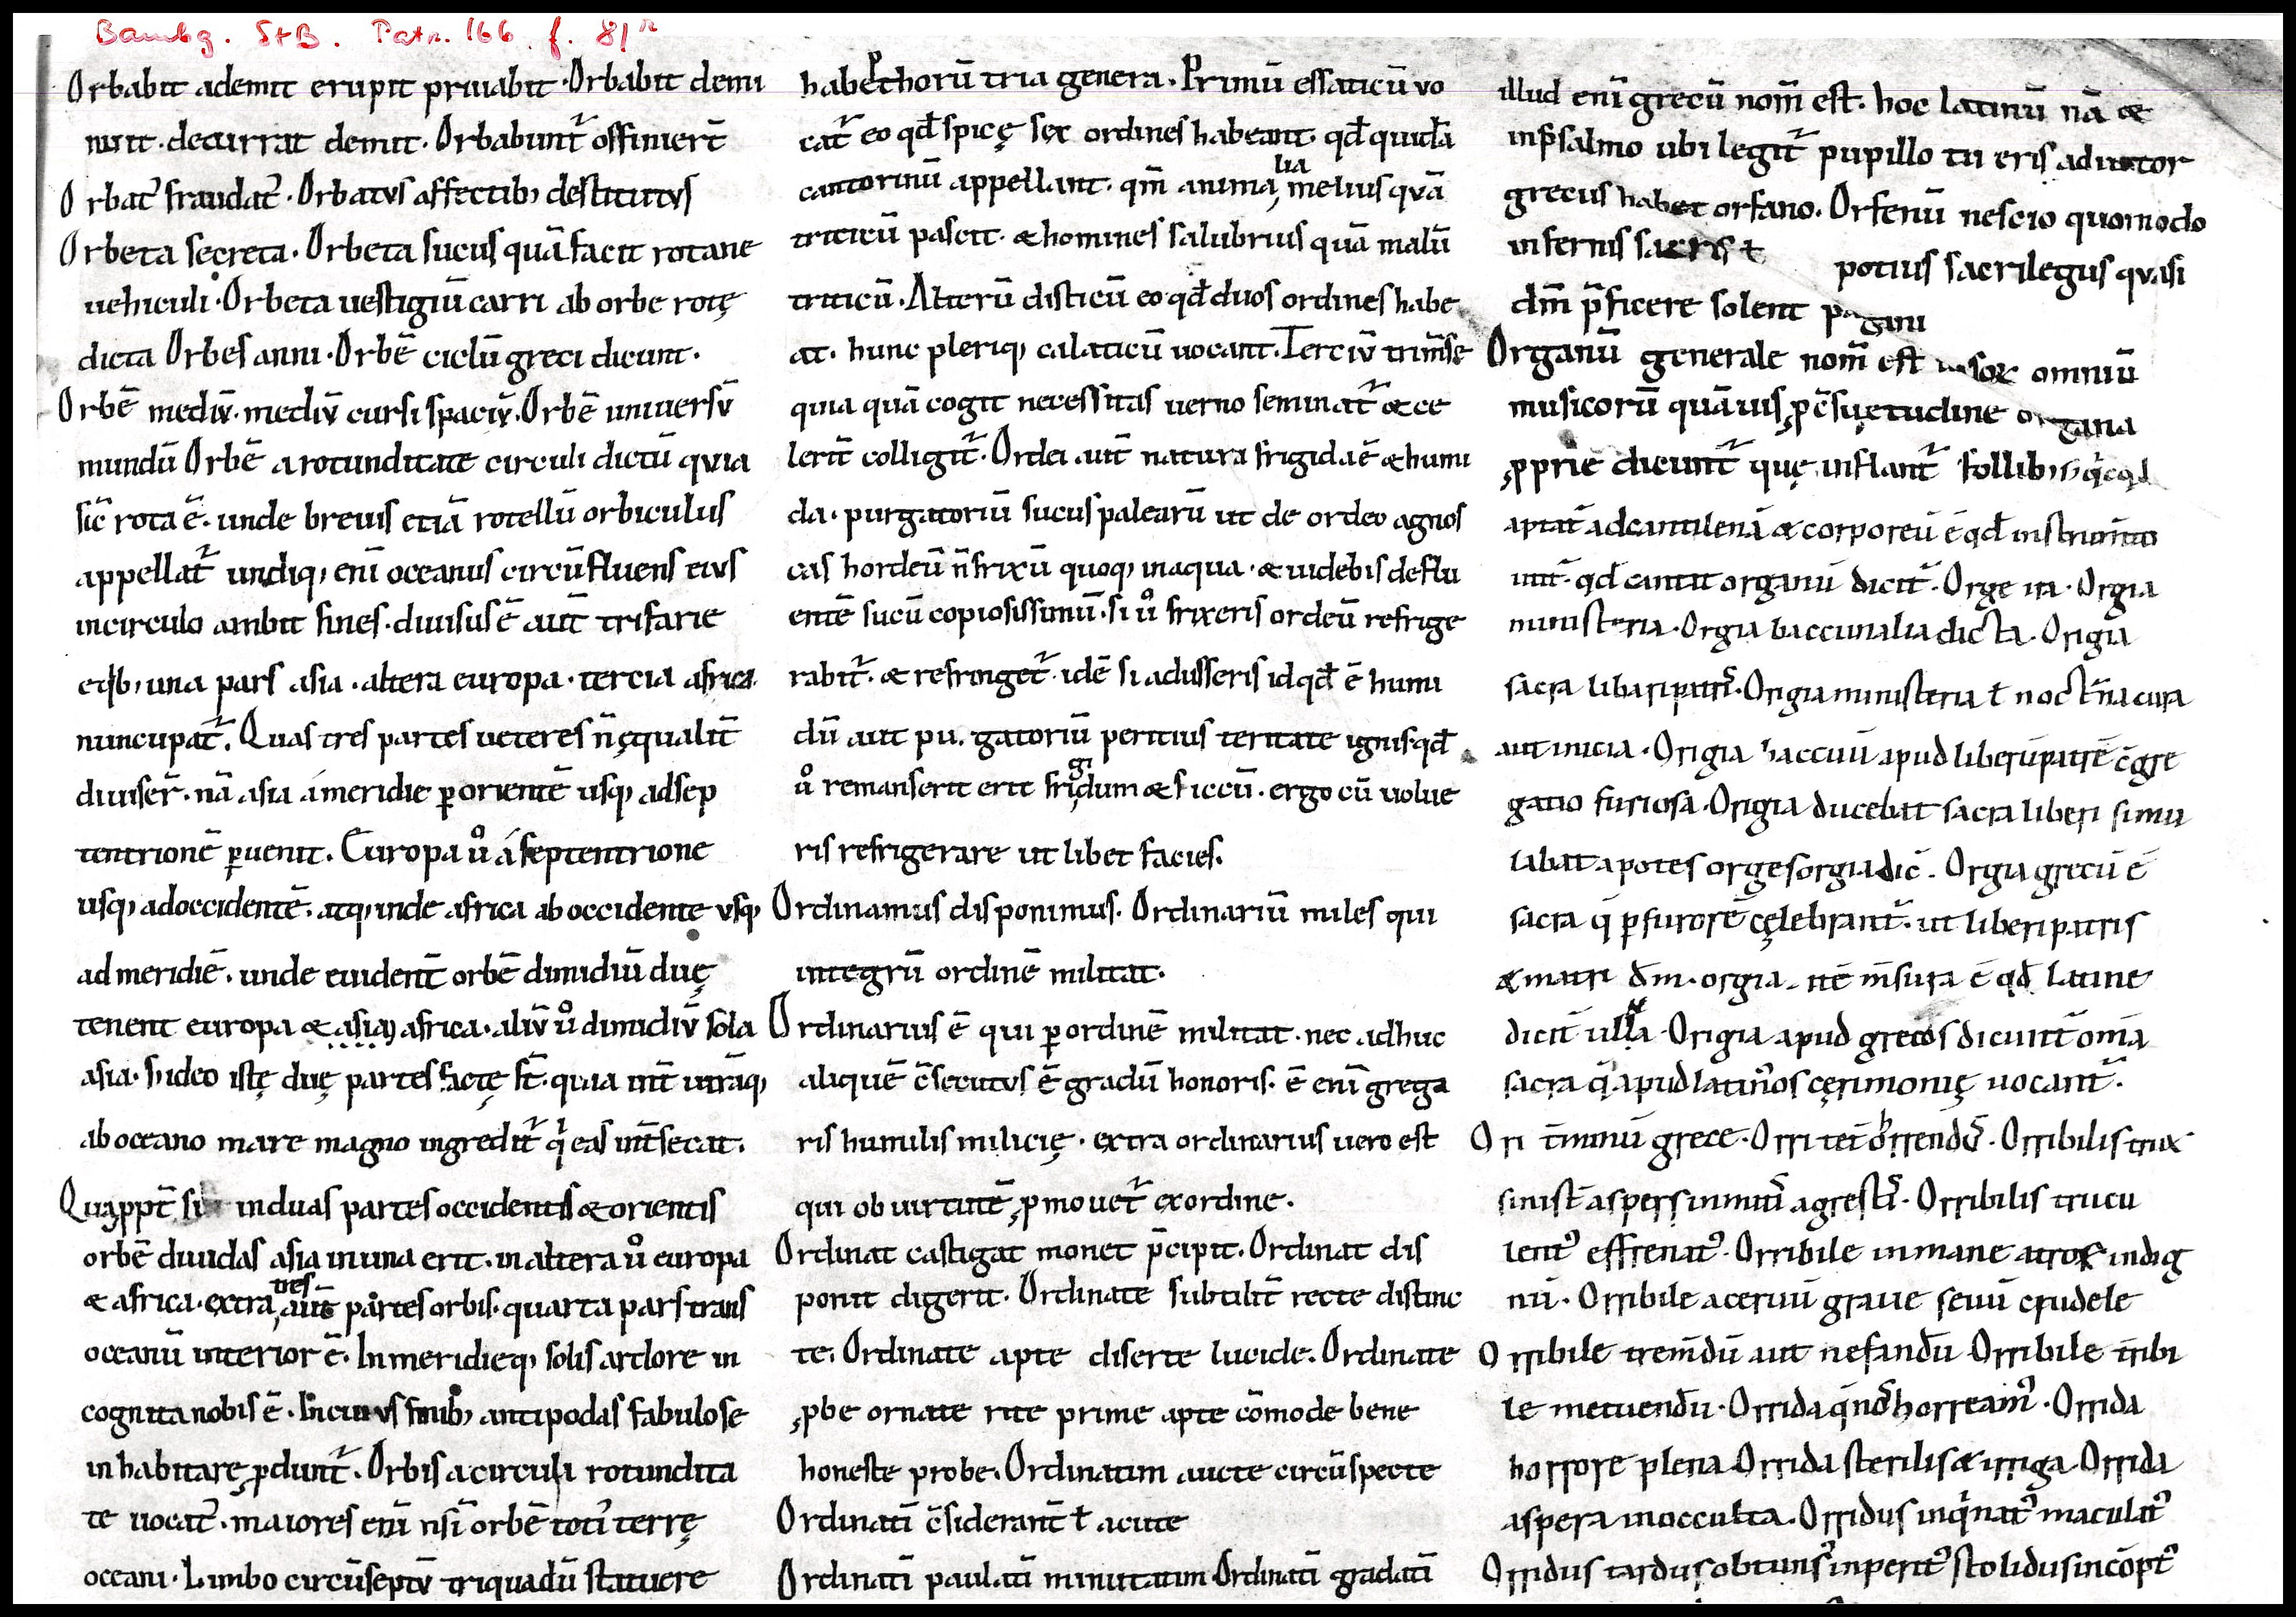 Bambg. StB. Patr. 166. f. 81r
Orbabit ademit erupit priuabit · Orbabit demi
nuit · decurrat demit · Orbabunt᷑ offinier̄t
Orbat᷒ fraudat᷒ · Orbatvs affectib; destitutvs
Orbeta secreta · Orbeta sucus quā facit rotane
uehiculi · Orbeta uestigiū carri ab orbe rotę
dicta Orbes anni · Orbē ciclū greci dicunt ·
Orbē mediv̄ · mediv̄ cursi spaciv̄ · Orbē uniuersv̄
mundū Orbē a rotunditate circuli dictū qvia
sic̄ rota ē · unde breuis etiā rotellū orbiculus
appellat᷑ undiq; eni̅ oceanus circūfluens eivs
incirculo ambit fines · diuisus ē aut̄ trifarie
eqib; una pars asia · altera europa · tercia africa
nuncupat᷑. Quas tres partes ueteres n̄ ęqualit̄
diuiser̄ · nā asia á meridie ꝑ orientē usq; adsep
tentrionē ꝑuenit. Europa ů á septentrione
usq; adoccidentē · atq; inde africa ab occidente vsq;
ad meridiē · unde euident̄ orbē dimidiū duę
tenent europa & asiaq; africa · aliv̄ ů dimidiv̄ sola
asia · s; ideo istę duę partes factę st̄ · quia int̄ utrāq;
ab oceano mare magno ingredit᷑ qͥ eas int̄secat.
Quappt̄ si induas partes occidentis & orientis
orbē diuidas asia inuna erit · in altera ů europa
& africa · extra tres aut̄ partes orbis · quarta pars trans
oceanū interior ē · In meridieq; solis ardore in
cognita nobis ē · finib; antipodas fabulose
inhabitare ꝓdunt᷑. Orbis a circuli rotundita
te uocat᷒ · maiores eni̅ nsi̅ orbē toti᷒ terrę
oceani · Limbo circūseptv̄ triquadū statuere
habet horū tria genera · Primū essaticū vo
cat᷑ eo qđ spicę sex ordines habeant · qđ quidā
cantorinū appellant · qm̄ animalia melius qvā
triticū pascit · & homines salubrius quā malū
triticū · Alterū disticū eo qđ duos ordines habe
at · hunc pleriq; calaticū uocant · Terciv̄ trim̄se
quia quā cogit necessitas uerno seminat᷑ & ce
lerit̄ colligit᷑. Ordei aut̄ natura frigida ē & humi
da · purgatoriū sucus palearū ut de ordeo agnos
cas hordeū n̄ frixū quoq; inaqua · & uidebis deflu
entē sucū copiosissimū · si ů frixeris ordeū refrige
rabit᷑ · & refringet᷑ · idē si adusseris id qđ ē humi
dū aut pu. gatoriū peritius teritate ignis · qđ
ů remanserit erit frigidum & siccū · ergo cū uolue
ris refrigerare ut libet facies.
Ordinamus disponimus. Ordinariū miles qui
integrū ordinē militat.
Ordinarius ē qui ꝑ ordinē militat · nec adhuc
aliquē c̄secutvs ē gradū honoris · ē eni̅ grega
ris humilis milicię · extra ordinarius uero est
qui ob uirtutē ꝓmouet᷑ ex ordine.
Ordinat castigat monet p̄cipit. Ordinat dis
ponit digerit. Ordinate subtilit̄ recte distinc
te. Ordinate apte diserte lucide. Ordinate
ꝓbe ornate rite prime apte cōmode bene
honeste probe. Ordinatim aucte circūspecte
Ordinati̅ c̄siderant̄ ł acute
Ordinati̅ paulati̅ minutatim Ordinati̅ gradati̅
illud eni̅ grecū nom̄ est · hoc latinū nā &
inpsalmo ubi legit᷑ pupillo tu eris adiutor
grecus habet orfano. Orfenū nescio quomodo
infernis sacris ł potius sacrilegus qvasi
dm̄ p̄ficere solent pagani
Organū generale nom̄ est uasor omniū
musicorū quāuis ꝓ c̄suętudine organa
ꝓprie dicunt᷑ quę inflant᷑ follib;
aptat̄ ad cantilenā & corporeū ē qđ instrumto
nitit᷑ · qđ cantat organū dicit᷑. Orge ira · Orgia
ministeria · Orgia baccunalia dicta. Origia
sacra liberi patris · Origia ministeria ł noct̄na cura
aut inicia · Origia baccuū apud liberū patrē c̄gre
gatio furiosa · Origia ducebat sacra liberi simu
labat apotes orges orgia dic̄. Orgia grecū ē
sacra q̄ ꝑ furorē cęlebrant᷑ · ut liberi patris
& matri dm̄ · orgia. itē m̄sura ē qđ latine
dicit̄ ulla · Origia apud grecos dicunt̄ om̄a
sacra q̄ apud latinos cęrimonię uocant᷑.
Ori t̄minū grece · Orri tet horrend᷒ · Orribilis trux
sinist̄ aspers inmiti᷒ agresti᷒ · Orribilis trucu
lent᷒ effrenat᷒ · Orribile inmane atrox indig
nū · Orribile aceruū graue seuū crudele
Orribile trem̄dū aut nefandū Orribile t̄ribi
le metuendū · Orrida q̄ horream᷒ · Orrida
horrore plena Orrida sterilis & irriga Orrida
aspera inocculta. Orridus inqͥnat᷒ maculat᷒
Orridus tardus obtunsi᷒ inperit᷒ stolidus incōpt᷒